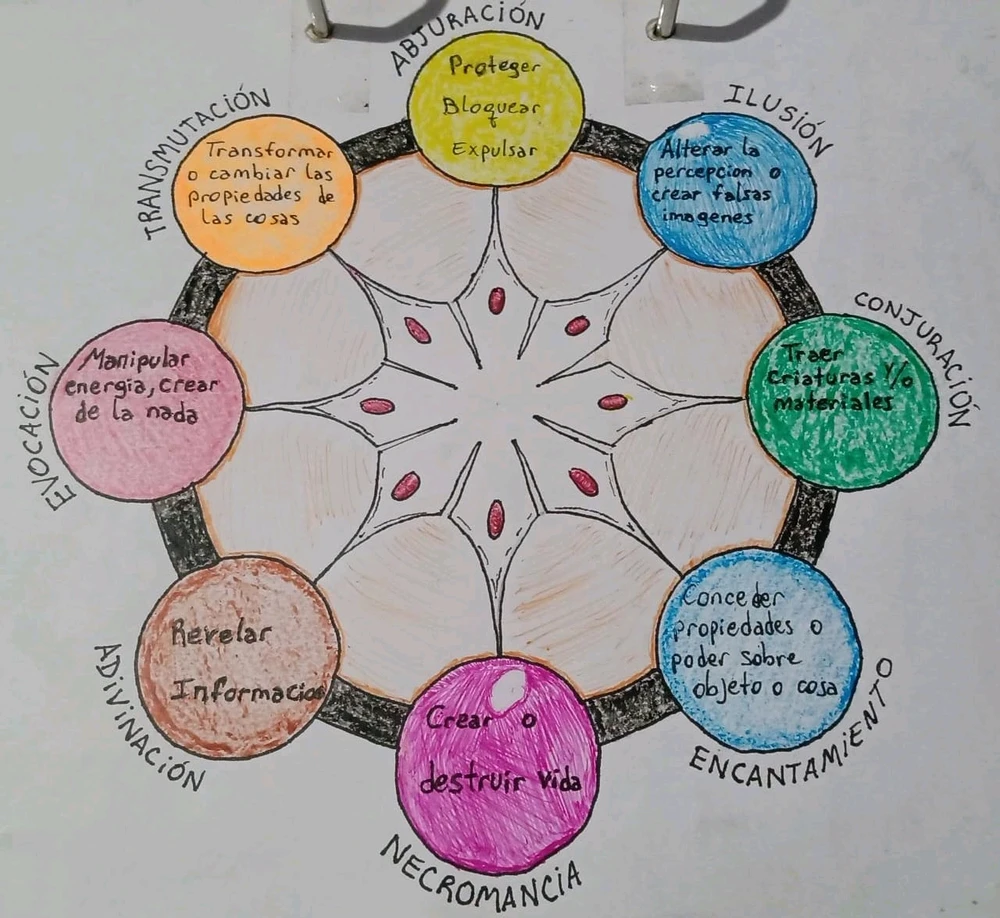 ABJURACIÓN
Proteger
Bloquear
Expulsar
ILUSIÓN
Alterar la
percepcion o
crear falsas
imagenes
CONJURACIÓN
Traer
criaturas y/o
materiales
ENCANTAMIENTO
Conceder
propiedades o
poder sobre
objeto o cosa
NECROMANCIA
Crear o
destruir vida
ADIVINACIÓN
Revelar
Informacion
EVOCACIÓN
Manipular
energia, crear
de la nada
TRANSMUTACIÓN
Transformar
o cambiar las
propiedades de
las cosas